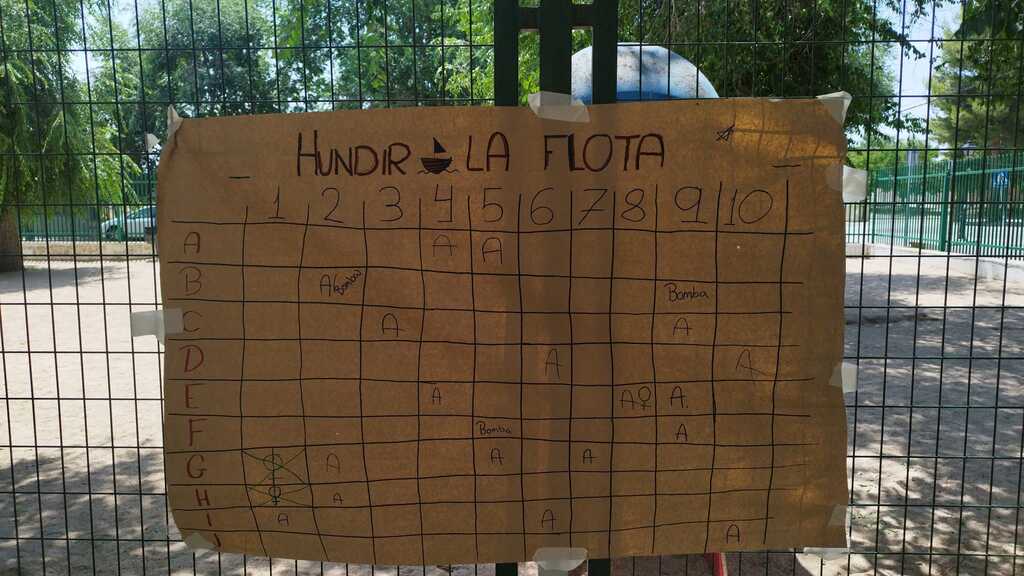 HUNDIR LA FLOTA
1 2 3 4 5 6 7 8 9 10
A A A
B A Bomba Bomba
C A A
D A A
E A A♀ A.
F Bomba A
G ♀ A A A
H ♀ A
I A A
J A